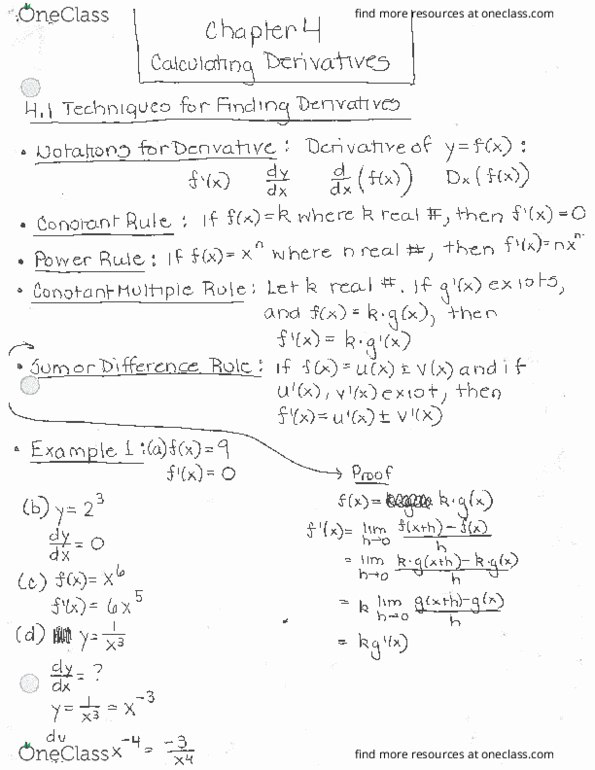 OneClass
find more resources at oneclass.com
Chapter 4
Calculating Derivatives
4.1 Techniques for Finding Derivatives
• Notations for Derivative : Derivative of y=f(x) :
f'(x) dy/dx d/dx (f(x)) Dx (f(x))
• Constant Rule : If f(x)=k where k real #, then f'(x)=0
• Power Rule : If f(x)=x^n where n real #, then f'(x)=nx^n-
• Constant Multiple Rule : Let k real #. If g'(x) exists,
and f(x)=k·g(x), then
f'(x)=k·g'(x)
• Sum or Difference Rule : if f(x)=u(x) ± v(x) and if
u'(x), v'(x) exist, then
f'(x)=u'(x) ± v'(x)
• Example 1 : (a) f(x)=9
f'(x)=0
(b) y=2^3
dy/dx = 0
(c) f(x)=x^6
f'(x)=6x^5
(d) y=1/x^3
dy/dx = ?
y=1/x^3 = x^-3
dy x^-4 = -3/x^4
Proof
f(x)= k·g(x)
f'(x)= lim h→0 f(x+h)-f(x)/h
= lim h→0 k·g(x+h)-k·g(x)/h
= k lim h→0 g(x+h)-g(x)/h
= kg'(x)
OneClass
find more resources at oneclass.com